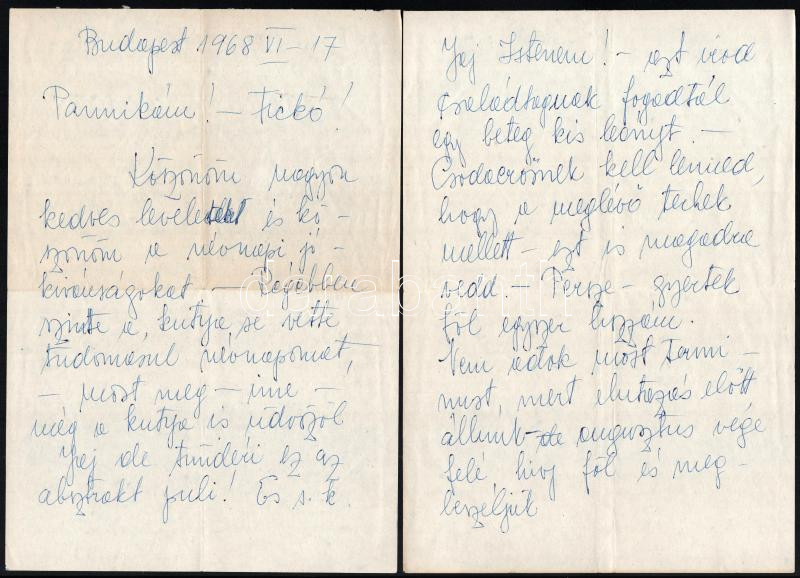 Budapest 1968 VI-17
Pannikám! - Fickó!
Köszönöm nagyon
kedves leveleteket és kö-
szönöm a névnapi jó-
kívánságokat - Régebben
szinte a kutya se vette
tudomásul névnapomat,
- most meg - ime -
még a kutya is üdvözöl
Jaj de tündéri ez az
absztrakt puli! És s.k.
Jaj Istenem! - ezt írod
családtagnak fogadtál
egy beteg kis leányt. -
Csodaerősnek kell lenned,
hogy a meglévő terhek
mellett - ezt is magadra
vedd. - Persze - gyertek
föl egyszer hozzám.
Nem adok most termi-
nust, mert elutazás előtt
állunk - de augusztus vége
felé, hívj föl és meg-
beszéljük
darabanth